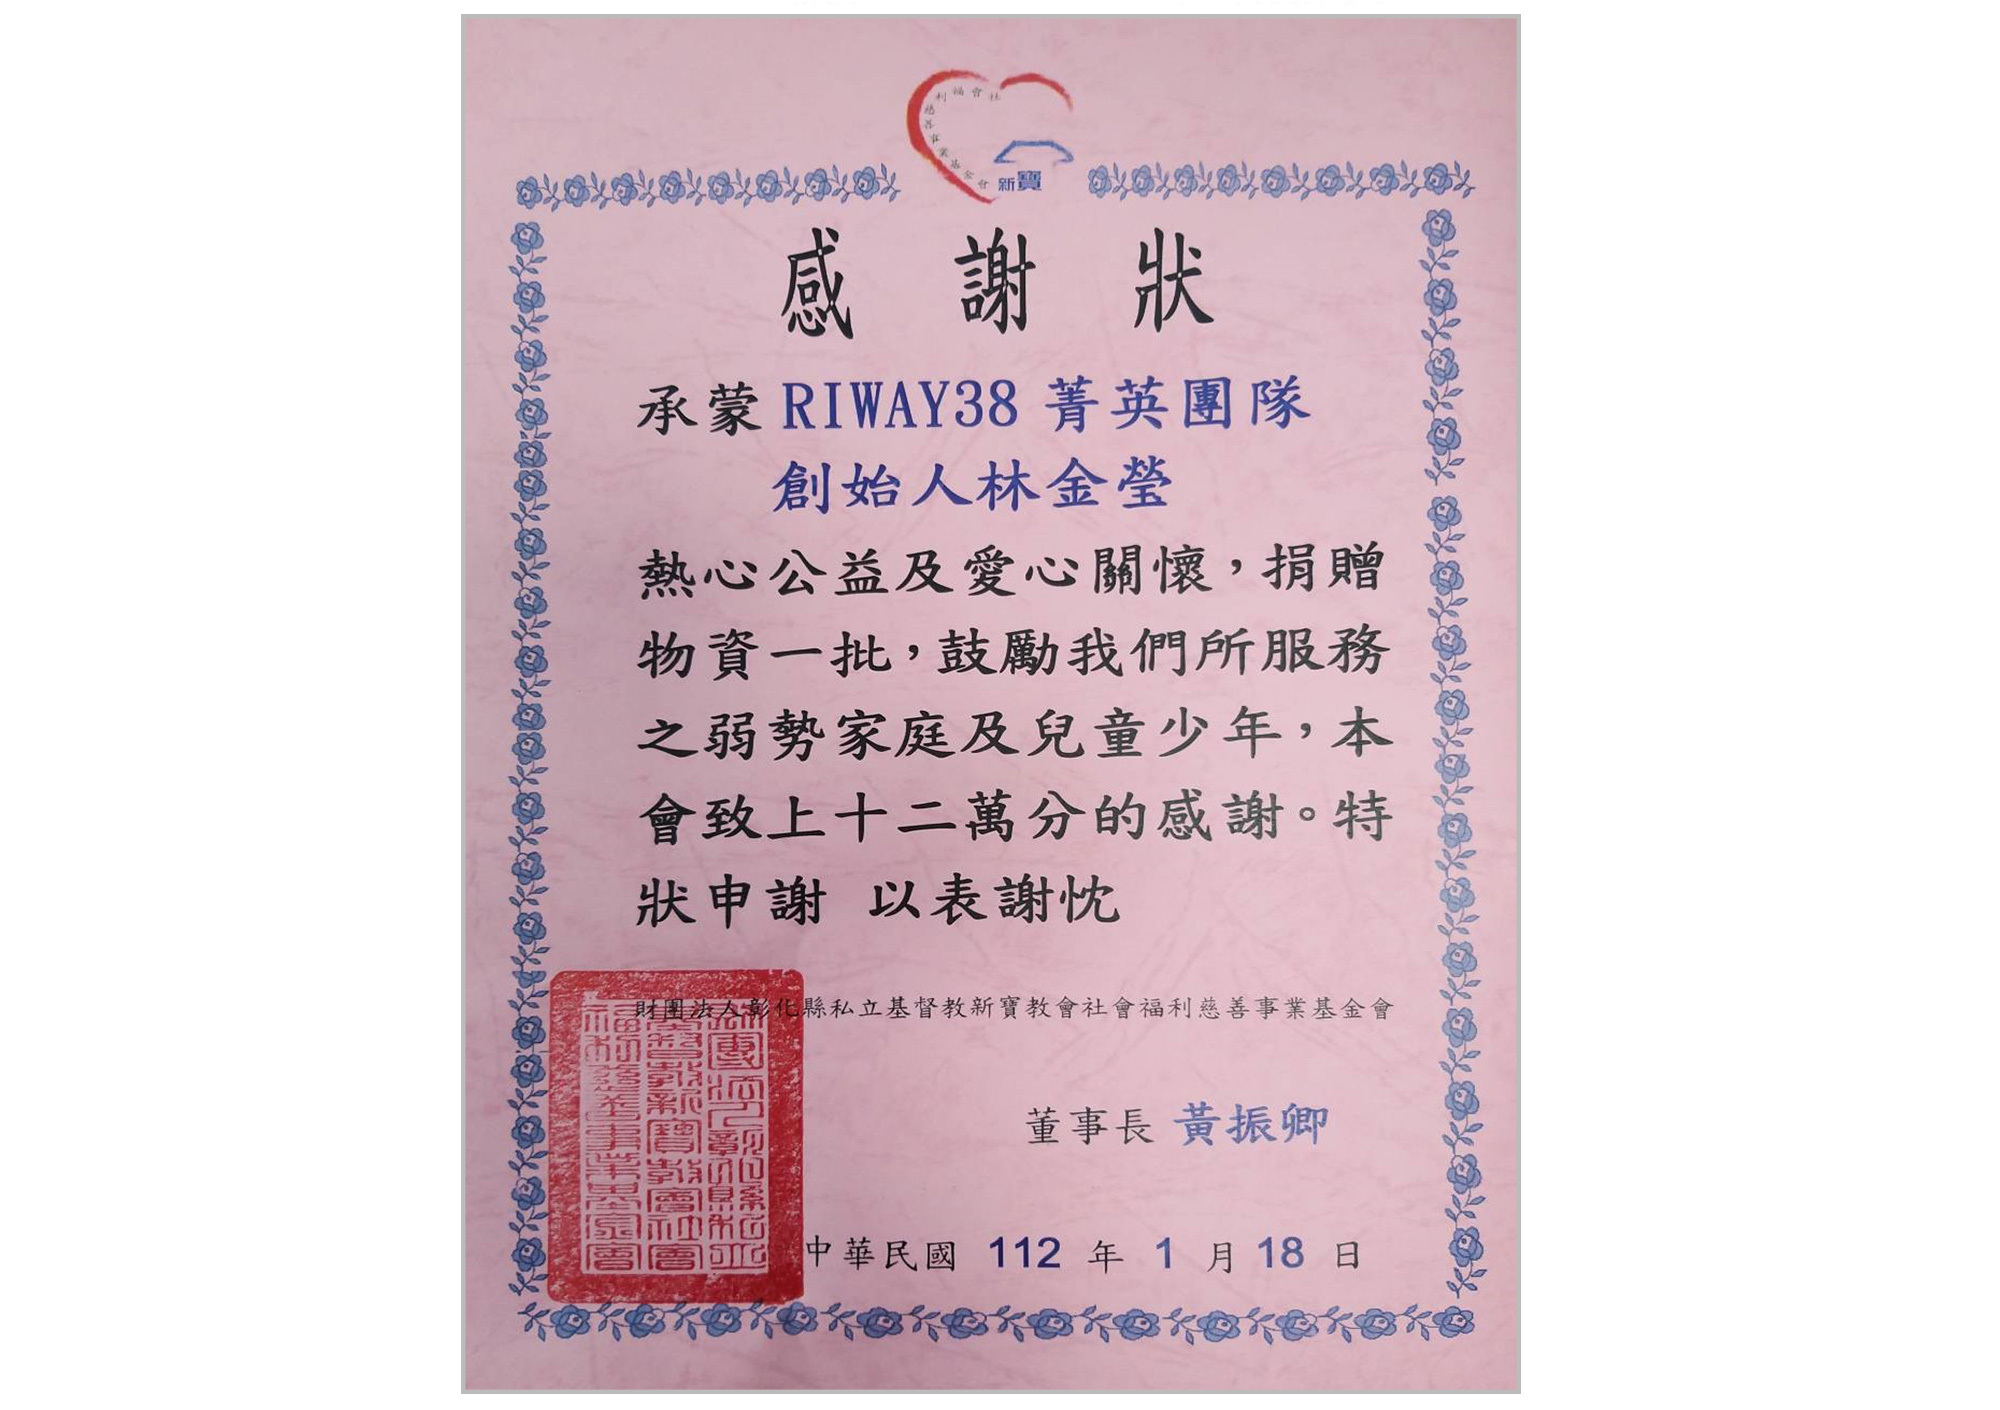 社會福利慈善事業基金會
新寶
感謝狀
承蒙 RIWAY38 菁英團隊
創始人林金瑩
熱心公益及愛心關懷，捐贈
物資一批，鼓勵我們所服務
之弱勢家庭及兒童少年，本
會致上十二萬分的感謝。特
狀申謝 以表謝忱
財團法人彰化縣私立基督教新寶教會社會福利慈善事業基金會
董事長 黃振卿
中華民國 112 年 1 月 18 日